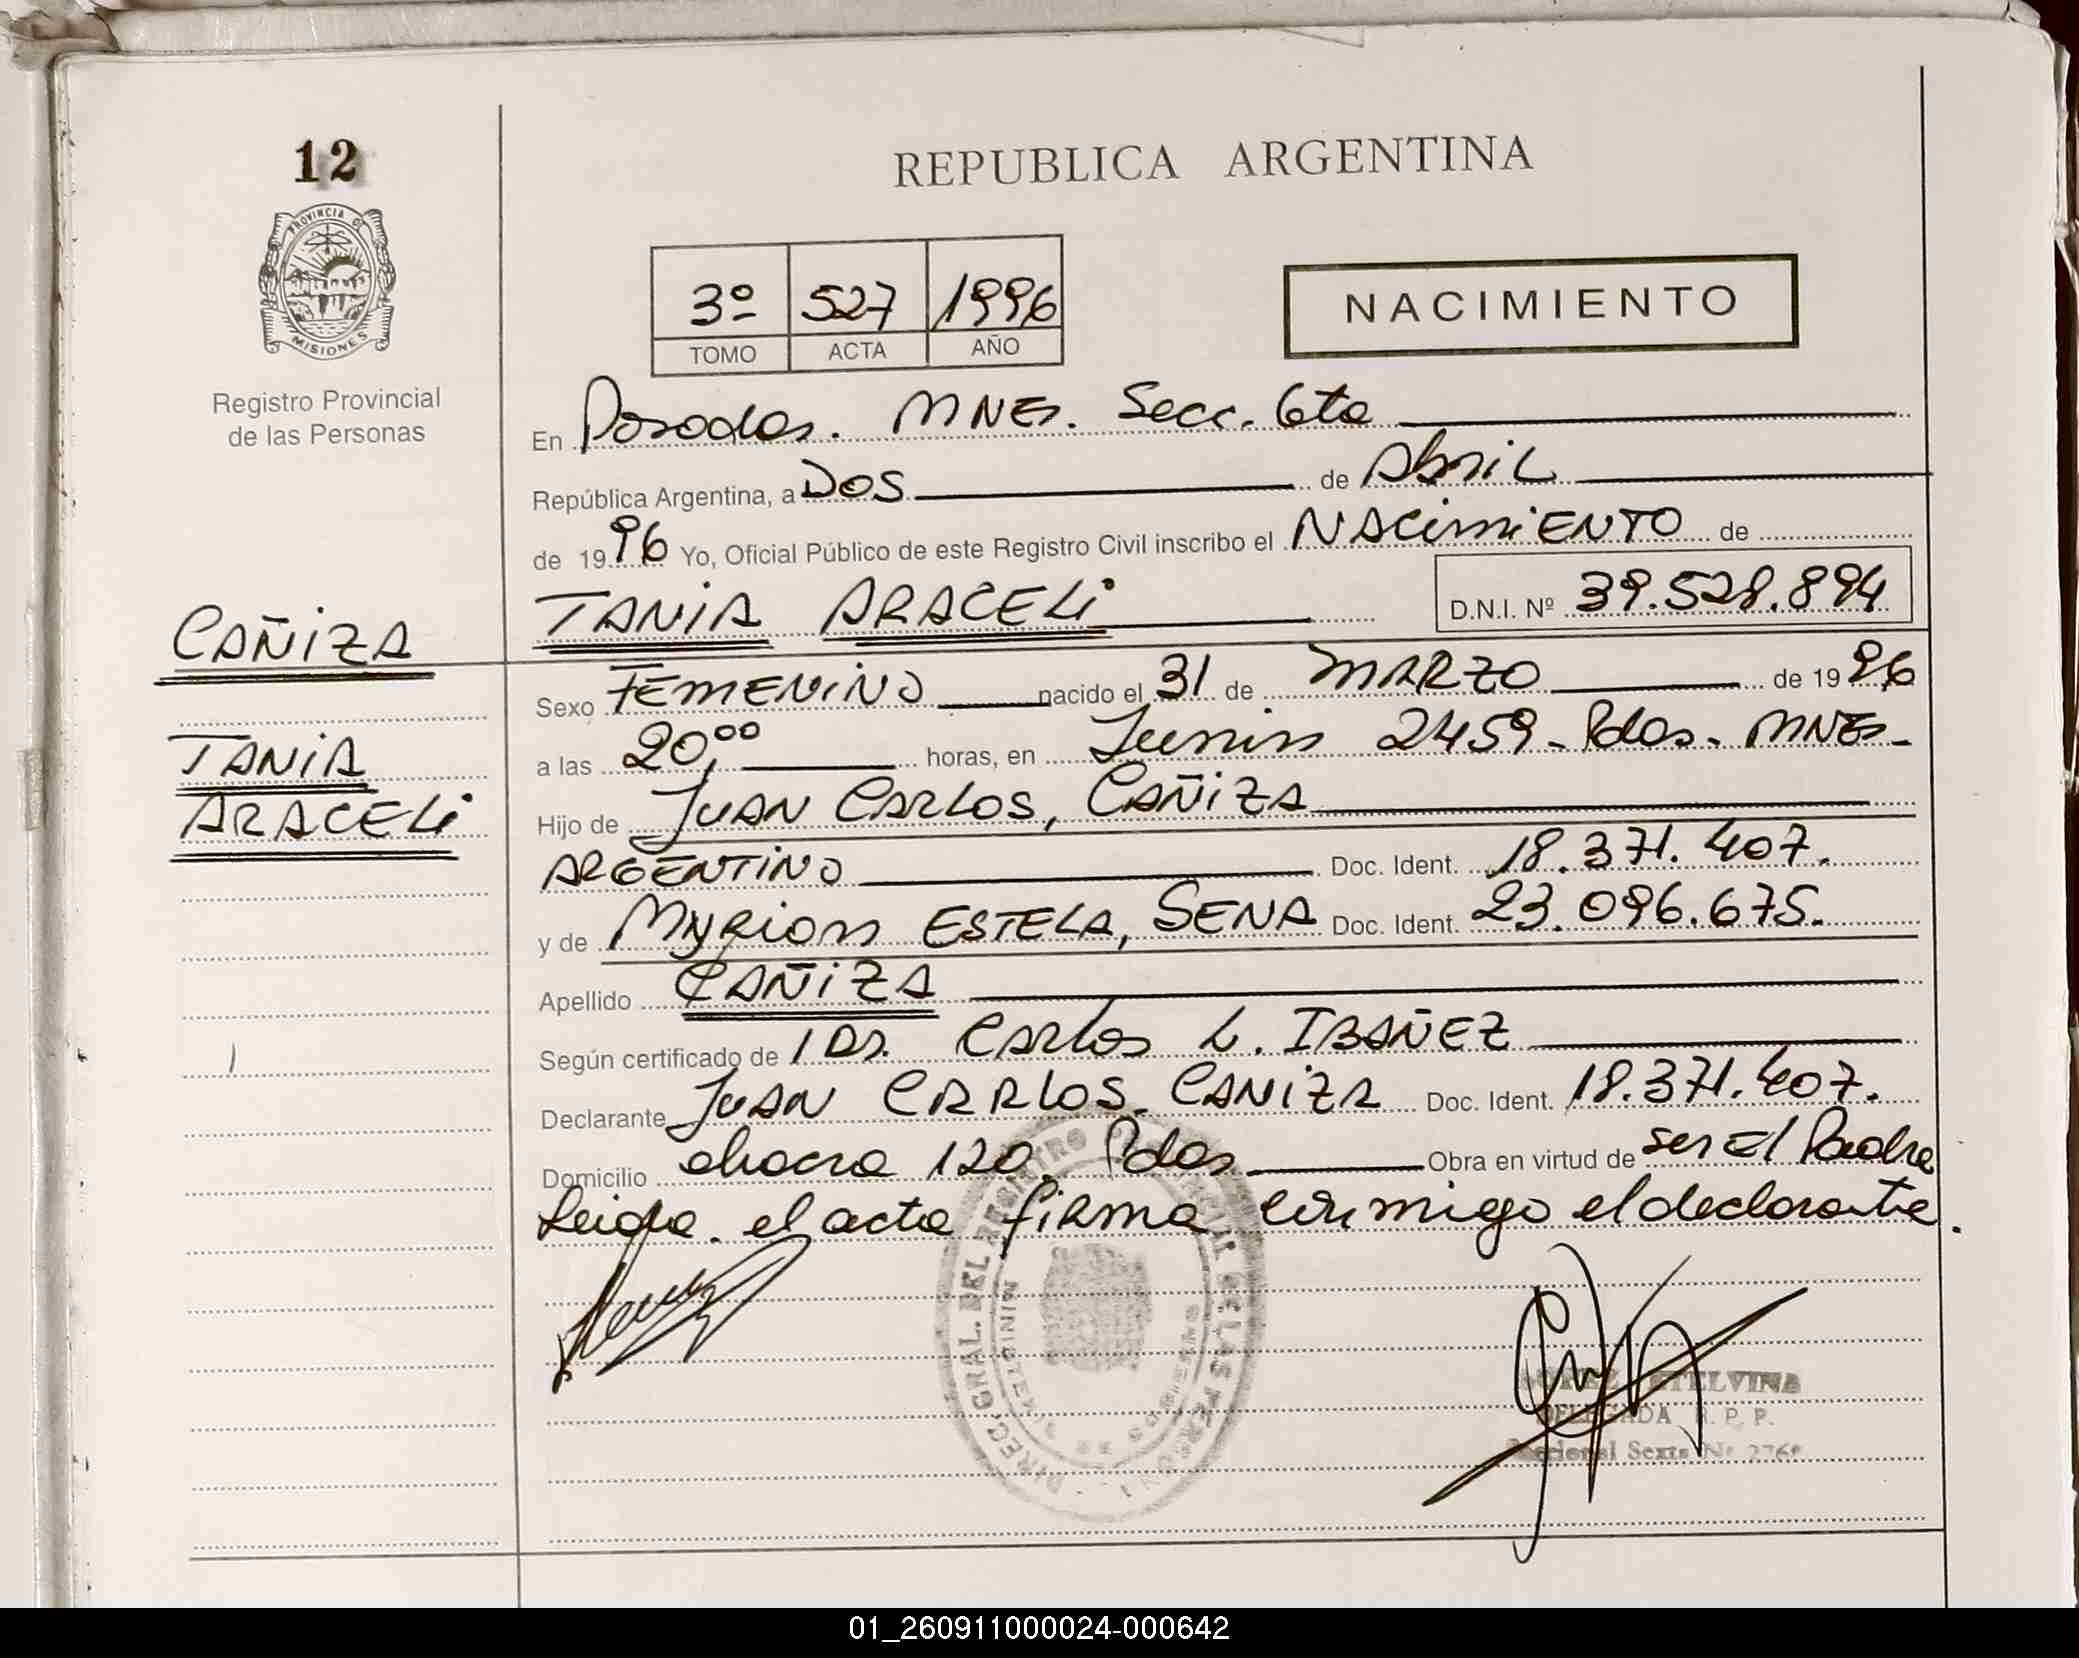 12
PROVINCIA DE
MISIONES
Registro Provincial
de las Personas
REPUBLICA ARGENTINA
3º 527 1996
TOMO ACTA AÑO
NACIMIENTO
En Posadas. MNES. Secc. 6ta
República Argentina, a DOS de Abril
de 1996 Yo, Oficial Público de este Registro Civil inscribo el NACimiENTO de
TANiA ARACELi D.N.I. Nº 39.528.894
CAÑiZA
TANiA
ARACELi
Sexo FEMENiNO nacido el 31 de MARZO de 1996
a las 20,00 horas, en Junin 2459 - Pdas - MNES -
Hijo de JUAN CARLOS, CAÑiZA
ARGENTINO Doc. Ident. 18.371.407.
y de Myriam ESTELA, SENA Doc. Ident. 23.096.675.
Apellido CAÑiZA
Según certificado de 1 Dr. Carlos L. IBAÑEZ
Declarante JUAN CARLOS CANiZA Doc. Ident. 18.371.407.
Domicilio chacra 120. Pdas Obra en virtud de ser El Padre
Leida el acta firma conmigo el declarante.
DIREC. GRAL. DEL REGISTRO DE LAS PERSONAS
MINISTERIO DE GOBIERNO
ETELVINA
DELEGADA R. P. P.
Seccional Sexta Nº 276º
01_260911000024-000642